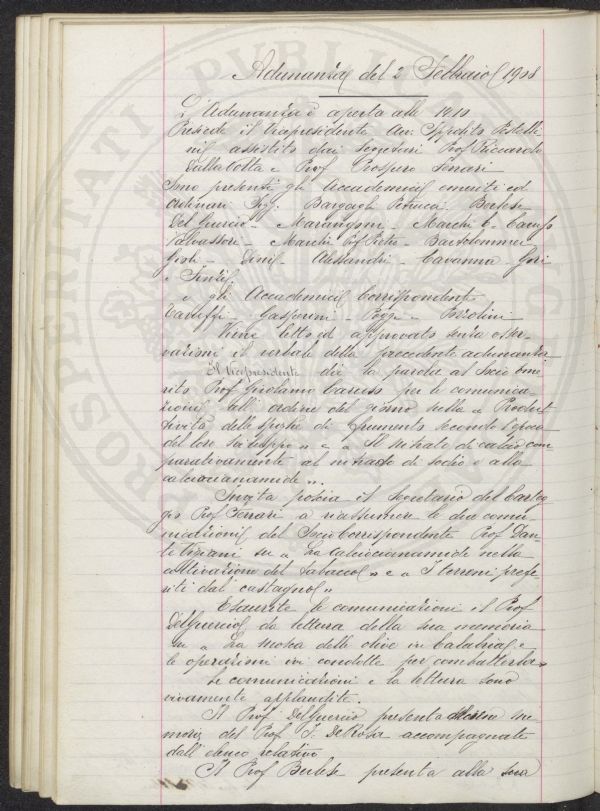 Adunanza del 2 Febbraio 1908
L'Adunanza è aperta alle
Presiede il Vicepresidente Avv. Ippolito Pestelli
ni assistito dai Segretari Prof Riccardo
Dalla Volta e Prof Prospero Ferrari
Sono presenti gli Accademici emeriti ed
ordinari Sigg. Bargagli Petrucci Berlese
Del Guercio - Marangoni - Marchi E - Caruso
Valvassori - Marchi Prof Pietro - Bartolommei
Gioli - Alessandri - Cavanna - Gori
e
e gli Accademici Corrispondenti
Gasperini - Poggi - Pozzolini
Viene letto ed approvato senza osser-
vazioni il verbale della precedente adunanza
Il Vicepresidente dà la parola al Socio eme
rito Prof Girolamo Caruso per le comunica
zioni all'ordine del giorno sulla « Produt
tività delle spighe di frumento secondo l'epoca
del loro sviluppo » e « Il nitrato di calcio com
parativamente al nitrato di sodio e alla
calciocianamide ».
Invita poscia il Segretario del Carteg
gio Prof Ferrari a riassumere le due comu-
nicazioni del Socio Corrispondente Prof Dan-
te Vigiani su « La calciocianamide nella
coltivazione del tabacco » e « I terreni prefe
riti dal castagno »
Esaurite le comunicazioni il Prof
Del Guercio dà lettura della sua memoria
su « La mosca delle olive in Calabria e
le operazioni ivi condotte per combatterla »
Le comunicazioni e la lettura sono
vivamente applaudite.
Il Prof Del Guercio presenta alcune me
morie del Prof F. De Rosa accompagnate
dall'elenco relativo
Il Prof Berlese presenta alla sua
PUBBLICA
PROSPERITATI